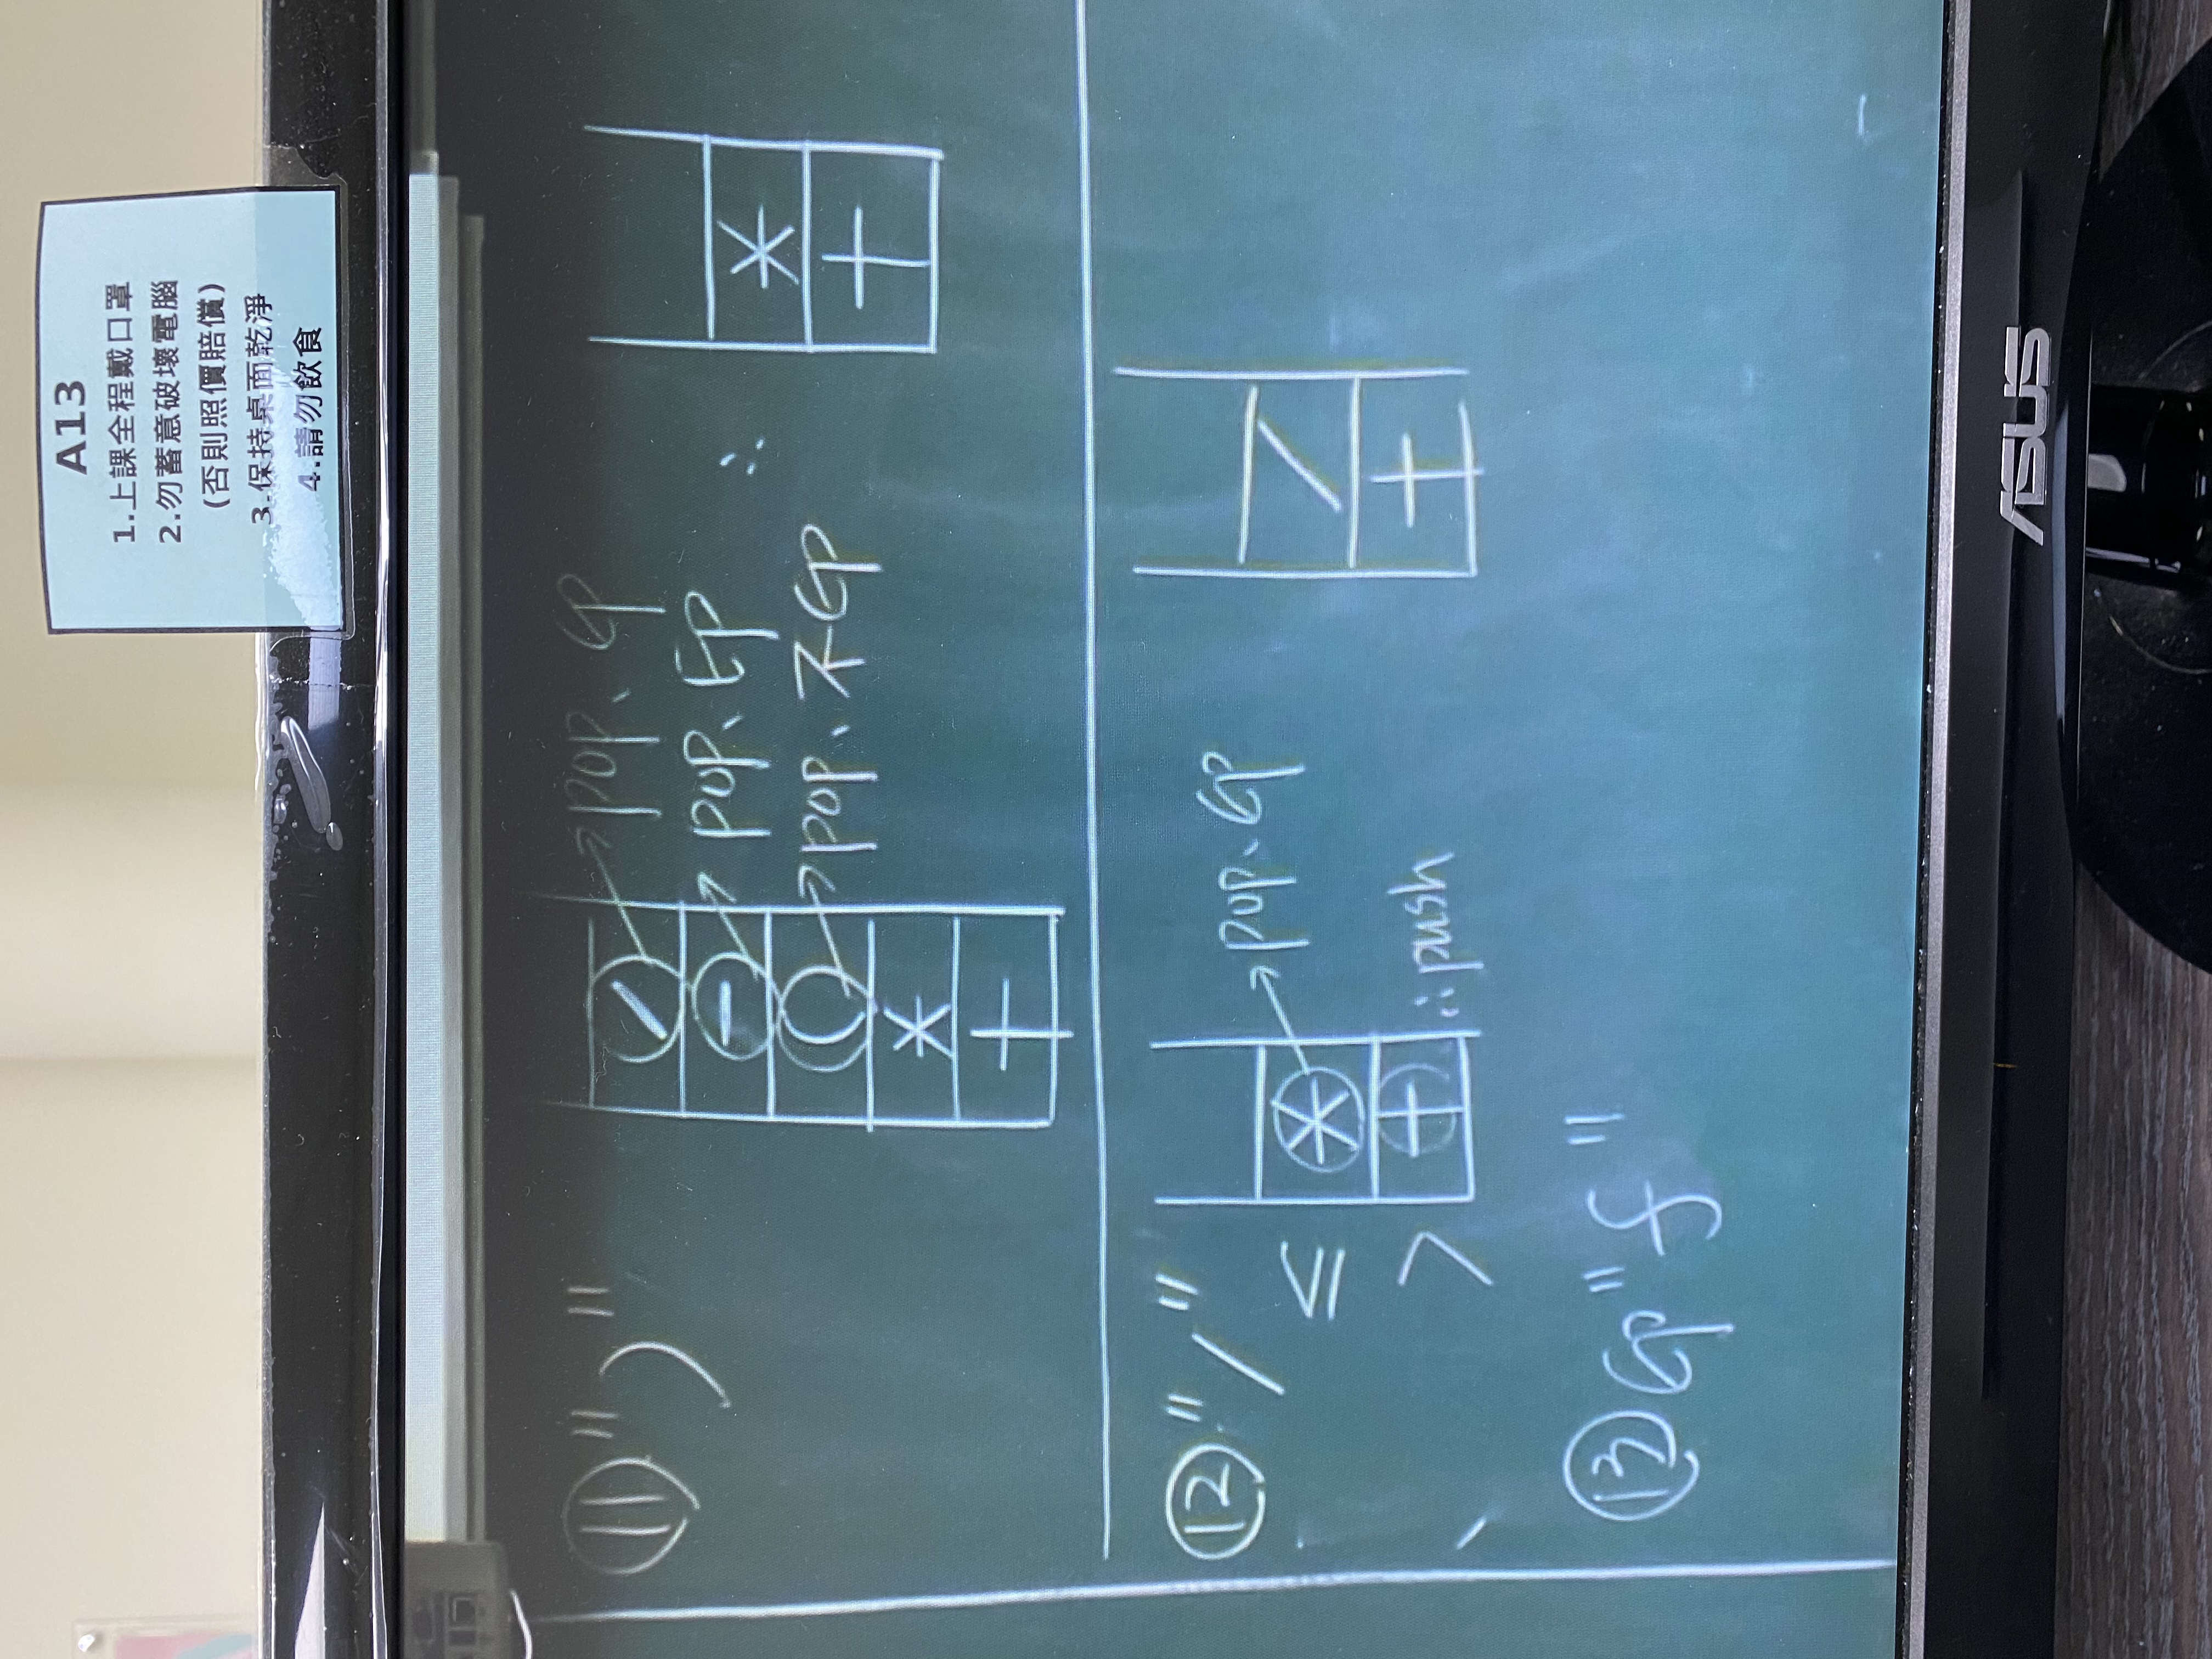 A13
1.上課全程戴口罩
2.勿蓄意破壞電腦
(否則照價賠償)
3.保持桌面乾淨
4.請勿飲食
⑪ ")"
/ → pop、印
- → pop、印
( → pop、不印
*
+
∴
*
+
⑫ "/"
≤ * → pop、印
> + ∴push
/
+
⑬ 印"f"
ASUS